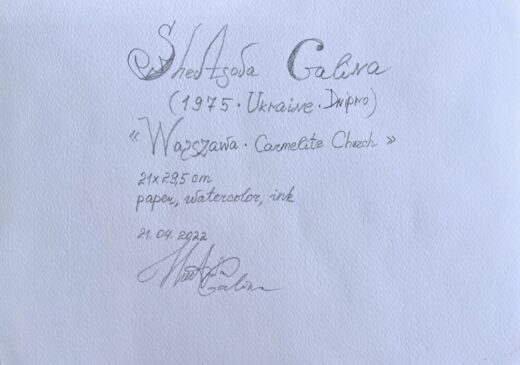 ShedAgoba Galina
(1975 · Ukraine · Dnipro)
« Warszawa · Carmelite Church »
21x29,5 cm
paper, watercolor, ink
21.04.2022
Galina